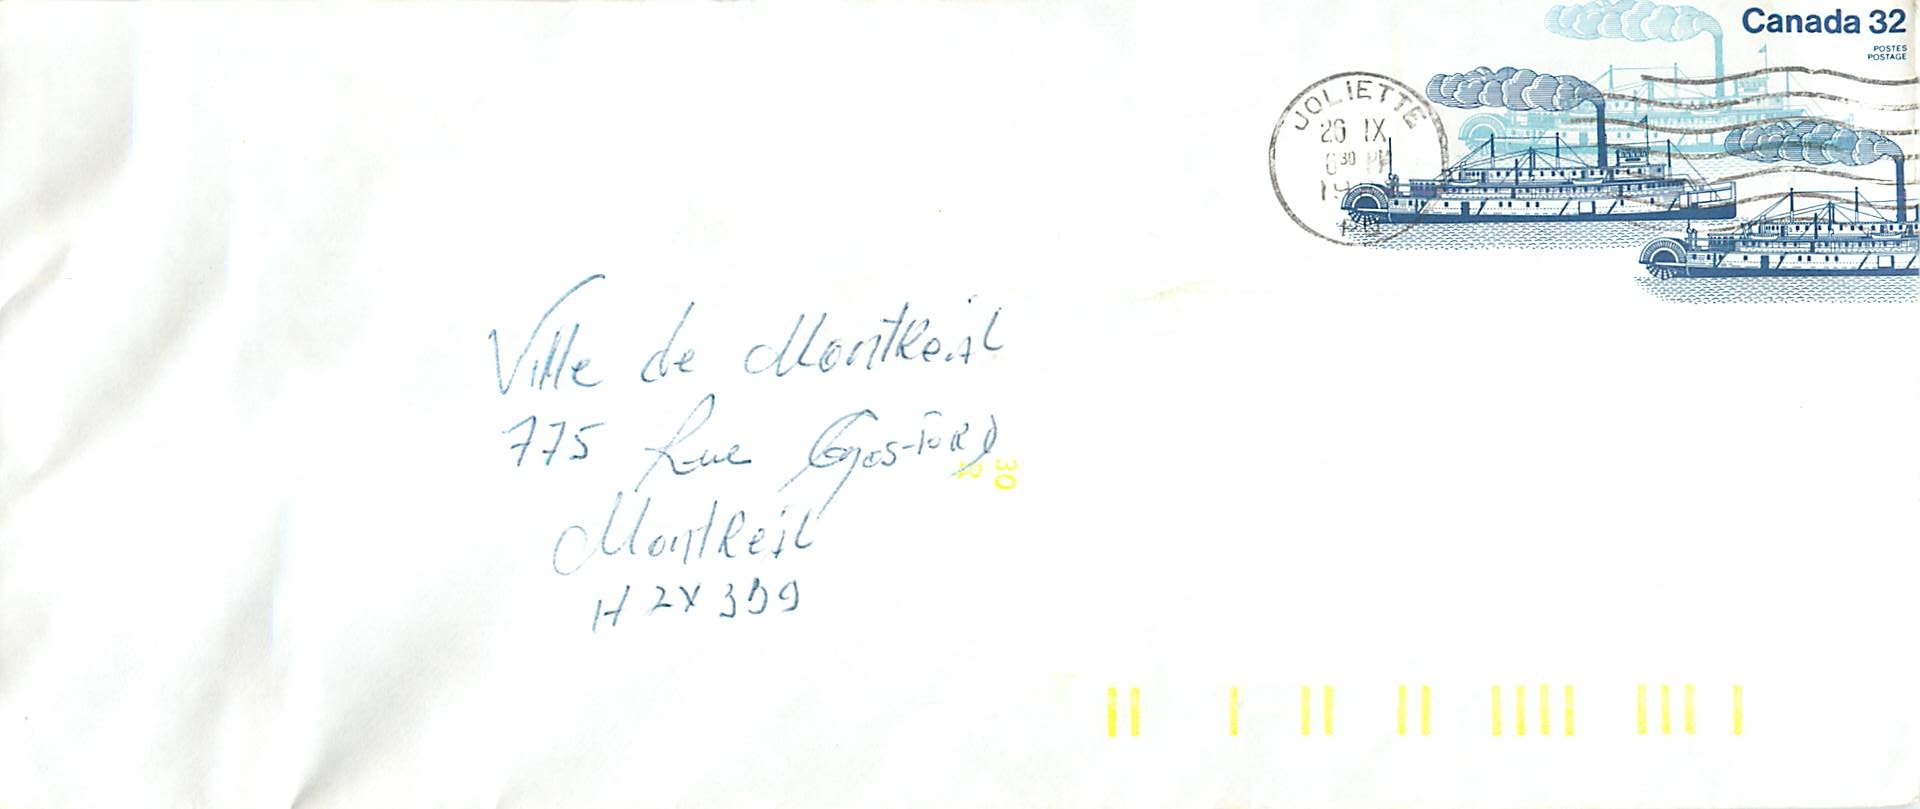 Canada 32
POSTES
POSTAGE
JOLIETTE
20 IX
6 30 PM
Ville de Montreal
775 Rue Gos-Ford
Montreal
H2X 3B9
30